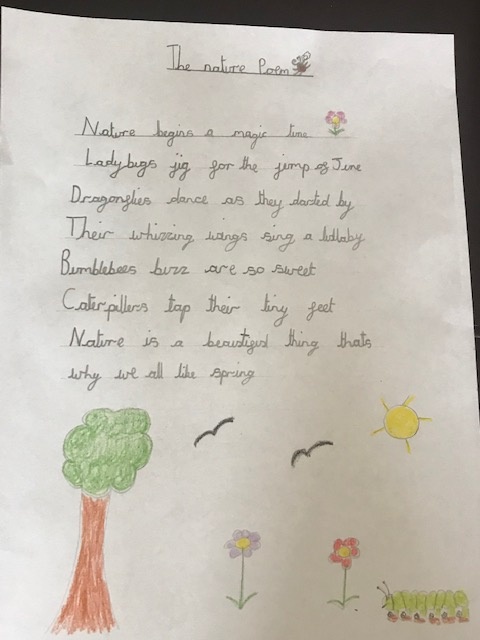 The nature Poem
Nature begins a magic time
Ladybugs jig for the jump of June
Dragonflies dance as they darted by
Their whizzing wings sing a lullaby
Bumblebees buzz are so sweet
Caterpillers tap their tiny feet
Nature is a beautiful thing thats
why we all like spring